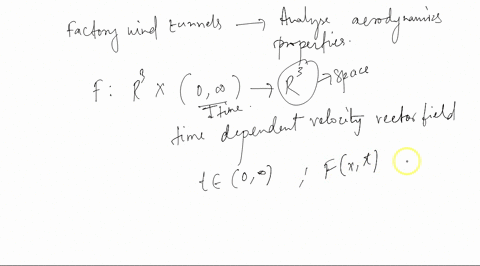 Factory wind tunnels → Analyse aerodynamics
properties.
F: R³ × (0,∞) → R³ → space
time.
time dependent velocity vector field
t ∈ (0,∞) ; F(x,t)